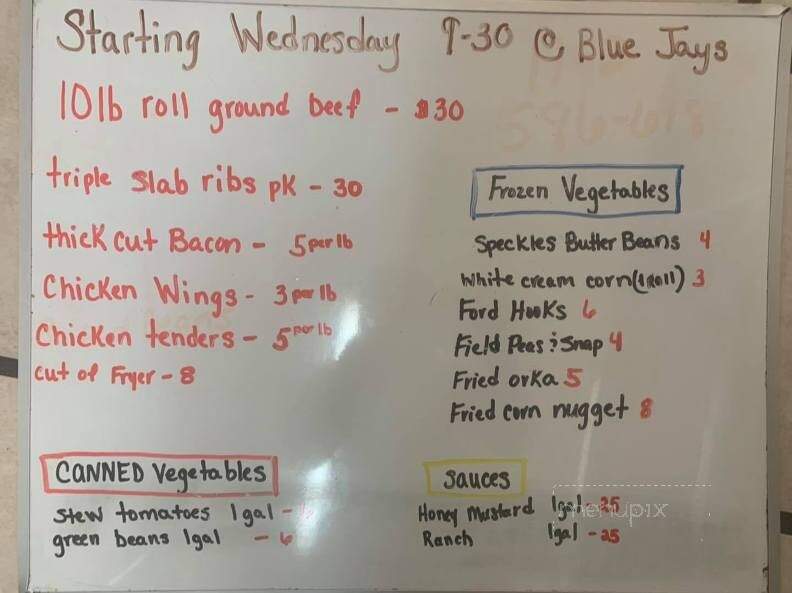 Starting Wednesday 9-30 @ Blue Jays
10lb roll ground beef - $30
triple slab ribs pk - 30
thick cut Bacon - 5 per lb
Chicken Wings - 3 per lb
Chicken tenders - 5 per lb
cut of Fryer - 8
Frozen Vegetables
Speckles Butter Beans 4
White cream corn (1 Roll) 3
Ford Hooks 6
Field Peas & Snap 4
Fried orka 5
Fried corn nugget 8
CANNED Vegetables
Stew tomatoes 1gal -
green beans 1gal - 6
Sauces
Honey Mustard 1gal - 25
Ranch 1gal - 25
menupix